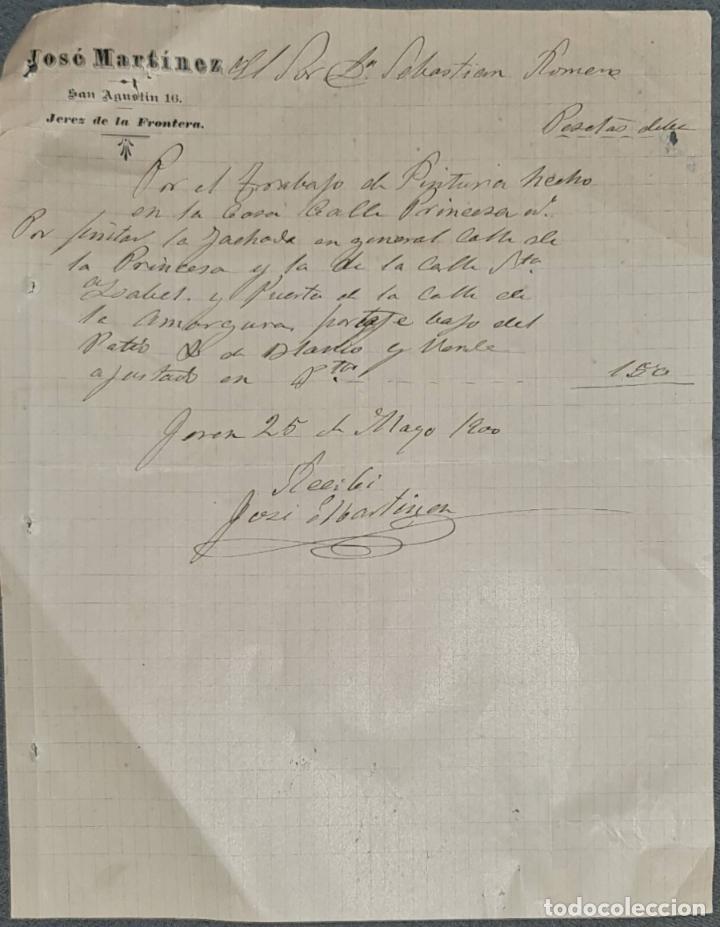 José Martínez
San Agustín 16.
Jerez de la Frontera.
El Sor Dn Sebastian Romero
Pesetas debe
Por el Trabajo de Pintura hecho
en la Casa Calle Princesa nº.
Por pintar la fachada en general Calle de
la Princesa y la de la Calle Sta
Isabel. y Puerta de la Calle de
la Amargura, portaje bajo del
Patio de Blanco y Verde
ajustado en Ptas 150
Jerez 25 de Mayo 1900
Recibi
José Martinez
todocoleccion
todocoleccion.net